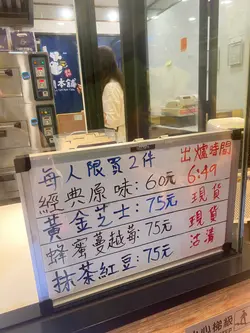 本舖
每人限買2件 出爐時間
經典原味:60元 6:49
黃金芝士:75元 現貨
蜂蜜蔓越莓:75元 現貨
抹茶紅豆:75元 沽清
心梯級